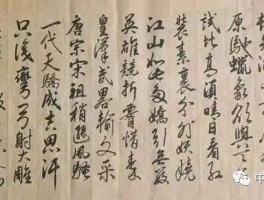 原馳蠟象欲與天
試比高須晴日看紅
裝素裹分外妖嬈
江山如此多嬌引無數
英雄競折腰惜秦
皇漢武略輸文采
唐宗宋祖稍遜風騷
一代天驕成吉思汗
只識彎弓射大雕